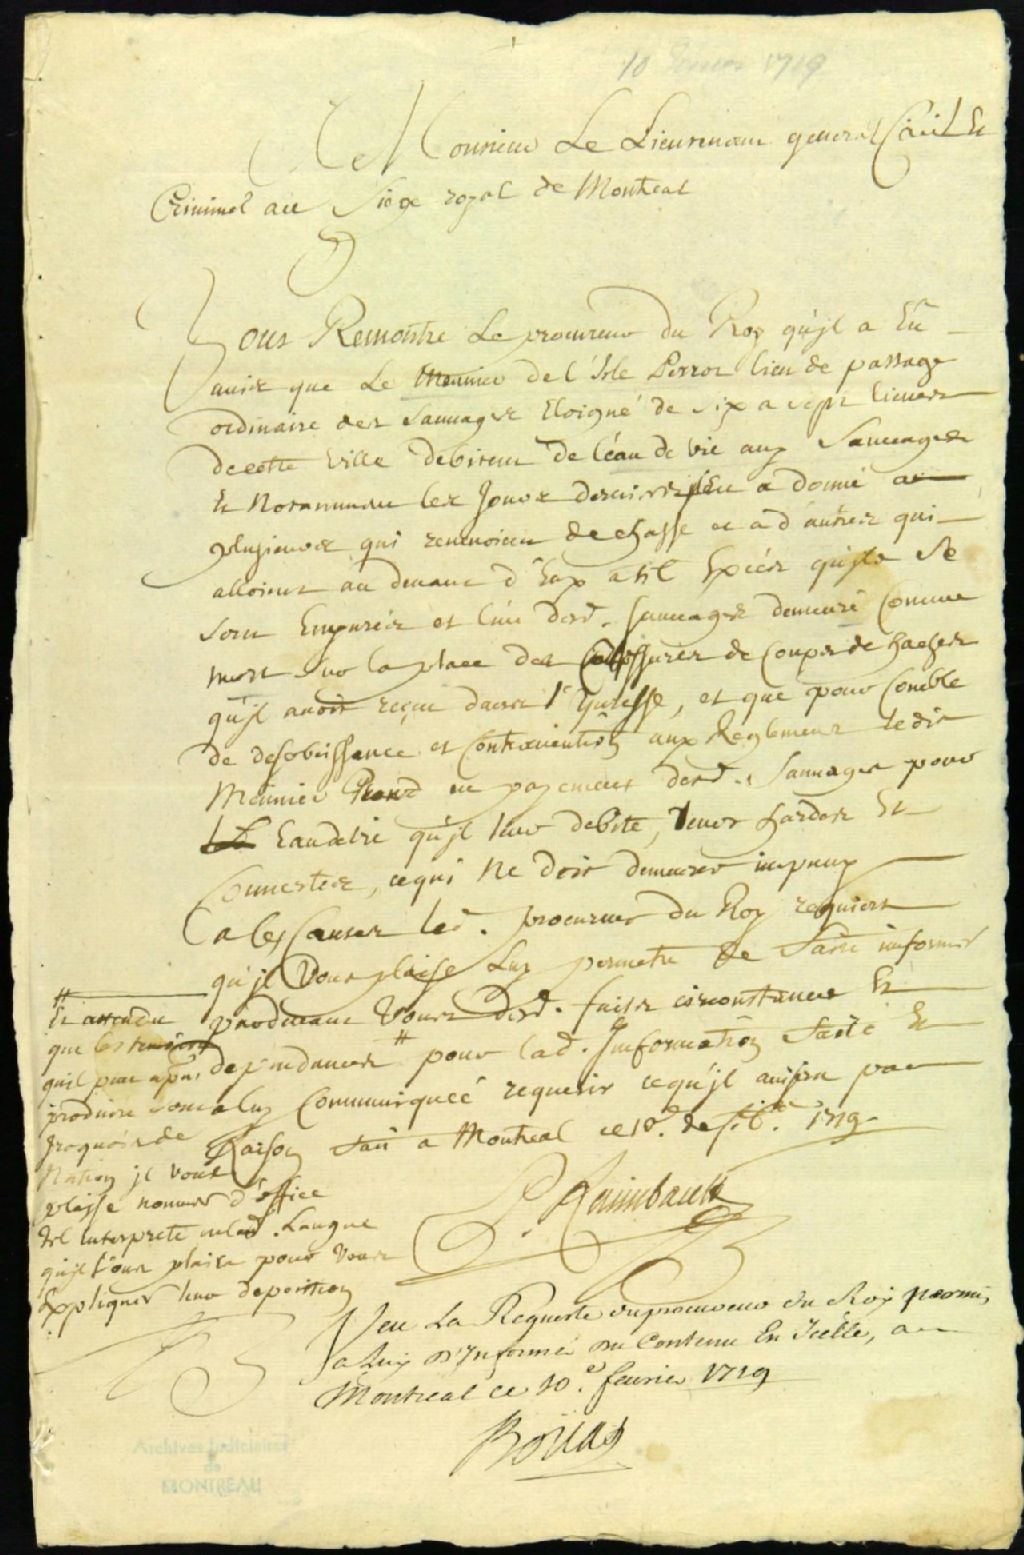 10 février 1719
A Monsieur Le Lieutenant general Civil Et
Criminel au Siege royal de Montreal
Vous Remontre Le procureur du Roy qu'jl a Eu
auis que Le Meunier de l'Isle Perrot lieu de passage
ordinaire des Sauuages Eloigné de six a sept lieues
de cette ville debitent de l'eau de vie aux Sauuages
Et notamment les jours derniers jl en a donné a
plusieurs qui reuenoient de chasse et a d'autres qui
alloient au deuant d'Eux a tel Excés qu'jls se
sont Enyurés et l'un desd. Sauuages demeuré Comme
mort sur la place des blessures de Coups de haches
qu'jl auoit reçeu dans l'yuresse, et que pour Comble
de desobeissance et Contrauention aux Reglemens ledit
Meunier Prend en payement desd. Sauuages pour
Eaudevie qu'jl leur debite, leurs hardes Et
Couuertes, ce qui Ne doit demeurer impuny
A Ces Causes led. procureur du Roy requiert
qu'jl Vous plaise Luy permettre de faire informer
pardeuant Vous desd. faits circonstances Et
dependances # pour lad. Information faite Et
Communiquée requerir ce qu'jl auisera par
Raison fait a Montreal ce 10e. de feb. 1719
P. Raimbault
# Et attendu
que les temoins
qu'il peut apñt
produire sont a luy
jroquois de
Nation jl vous
plaise nommer d'office
tel interprete en lad. Langue
qu'jl Vous plaira pour Vous
Expliquer leur deposition
Veu La Requeste du procureur du Roy permis
a luy d'Informer du Contenu En Icelle, a
Montreal ce 10.e feurier 1719
Bouat
Archives Judiciaires
de
MONTREAL